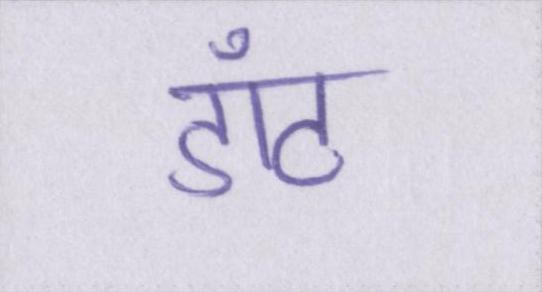 डाँट